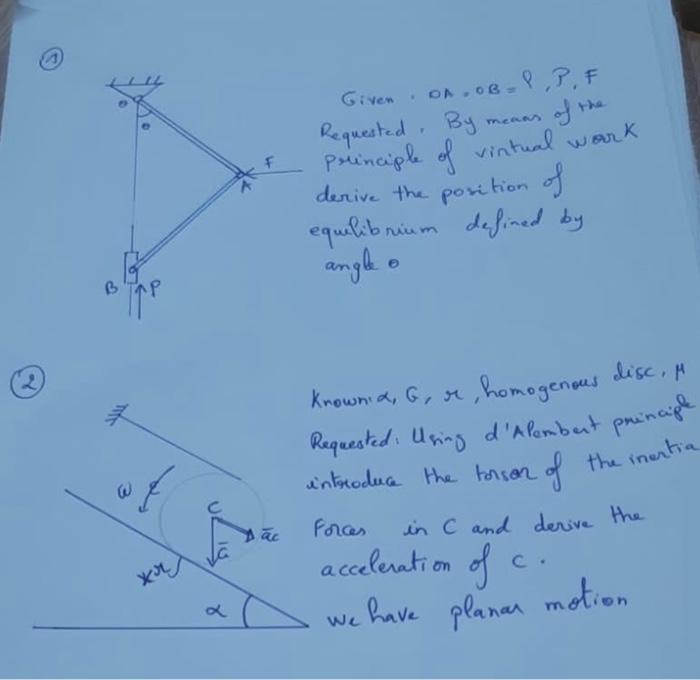 1
Given. OA = OB = l, P, F
Requested. By means of the
principle of virtual work
derive the position of
equilibrium defined by
angle θ
O
θ
F
A
B P
2
Known: α, G, r, homogenous disc, μ
Requested: Using d'Alembert principle
introduce the torsor of the inertia
Forces in C and derive the
acceleration of C.
we have planar motion
ω
C
ā_C
Ḡ
α